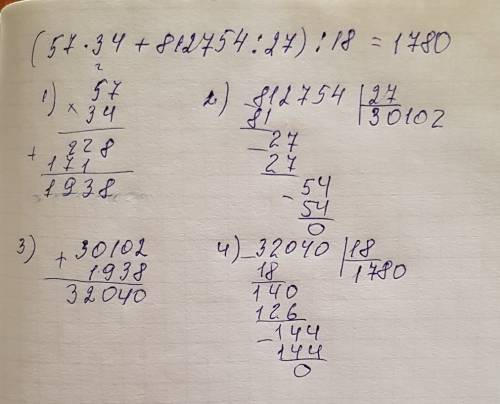 (57·34 + 812754:27):18 = 1780
1) 57
2
× 34
+ 228
171
1938
2) 812754 | 27
- 81 30102
- 27
27
- 54
54
0
3) + 30102
1938
32040
4) - 32040 | 18
18 1780
140
126
- 144
144
0